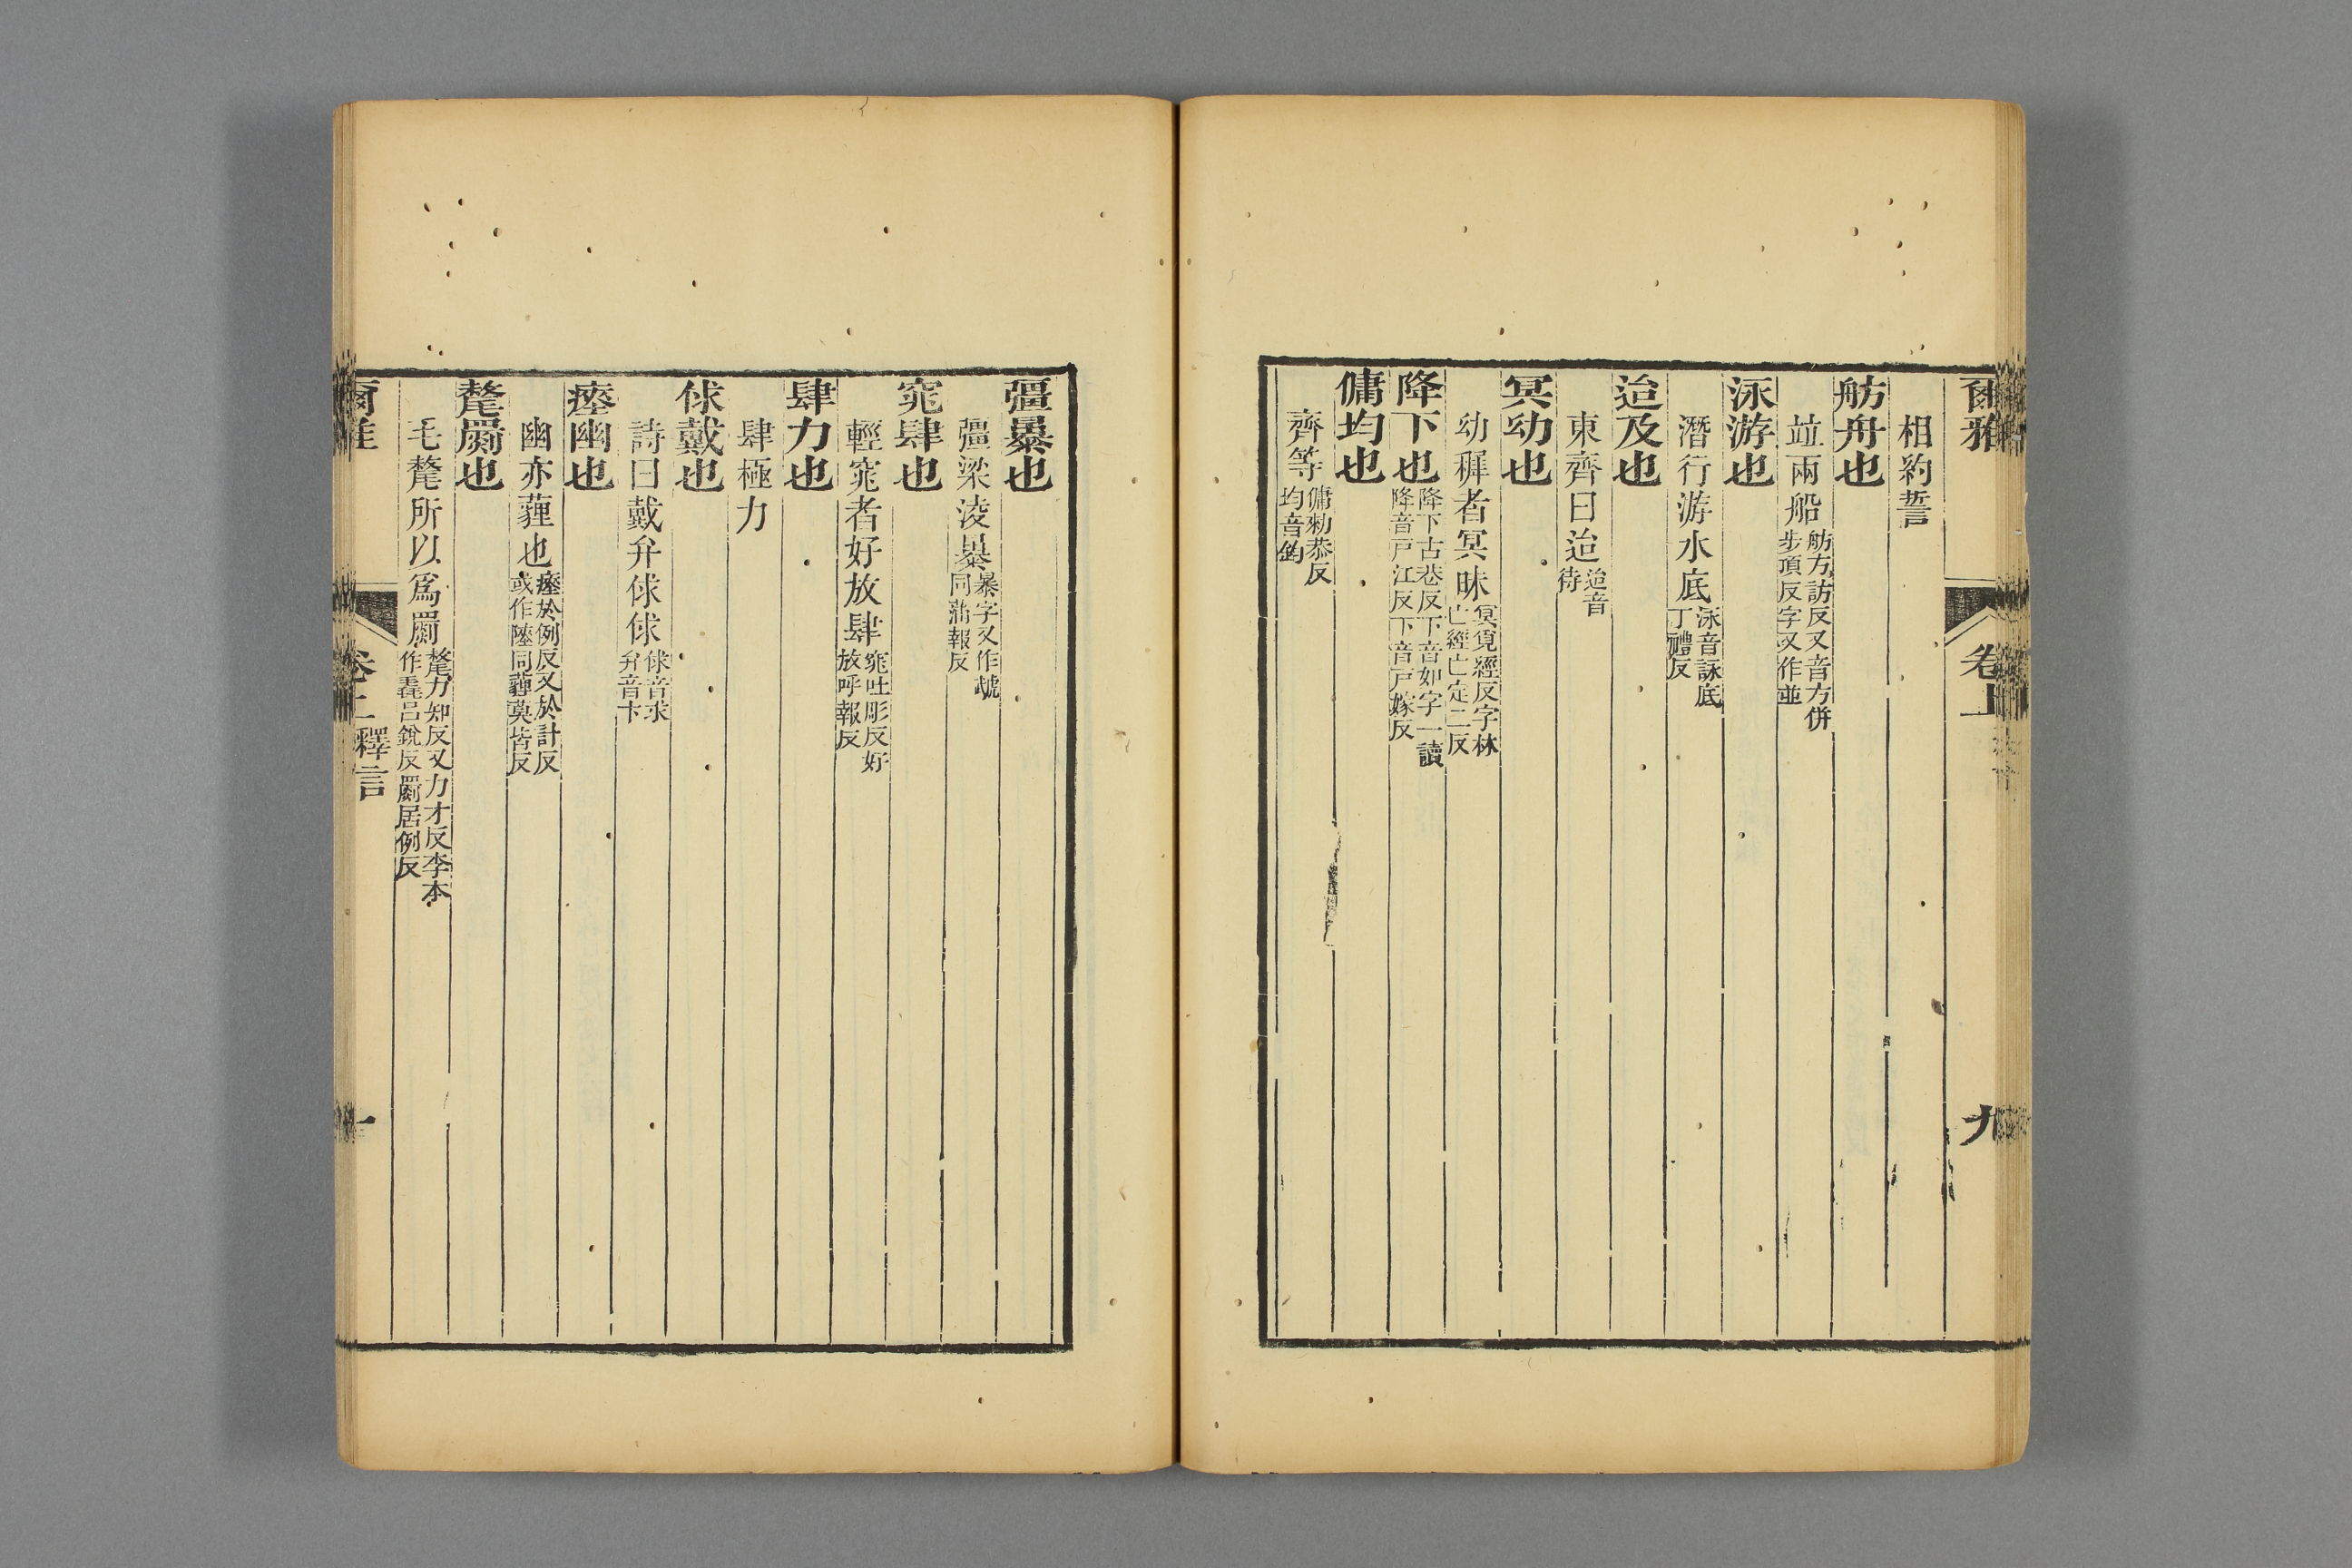 爾雅
卷上
九
相約誓
舫舟也
竝兩船舫方訪反又音方併
步頂反字又作並
泳游也
潛行游水底泳音詠底
丁禮反
迨及也
東齊曰迨迨音
待
冥幼也
幼稺者冥昧冥覓經反字林
亡經亡定二反
降下也降下古巷反下音如字一讀
降音戸江反下音戸嫁反
傭均也
齊等傭勑恭反
均音鈞
彊暴也
彊梁淩暴暴字又作虣
同蒲報反
窕肆也
輕窕者好放肆窕吐彫反好
放呼報反
肆力也
肆極力
俅戴也
詩曰戴弁俅俅俅音求
弁音卞
瘞幽也
幽亦薶也瘞於例反又於計反
或作㙪同薶莫皆反
氂罽也
毛氂所以爲罽氂力知反又力才反李本
作毳昌銳反罽居例反
爾雅
卷上釋言
十